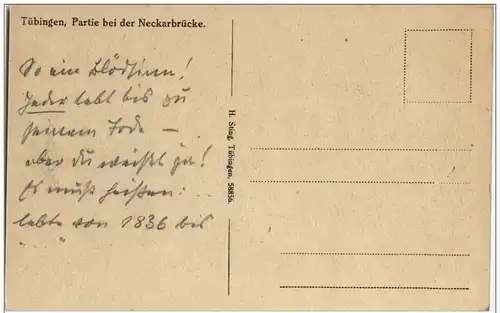 Tübingen, Partie bei der Neckarbrücke.
So ein Blödsinn!
Jeder lebt bis zu
seinem Tode —
aber du weißt ja!
Es muß heißen: ...
lebte von 1836 bis
"..."
H. Sting, Tübingen, 58836.